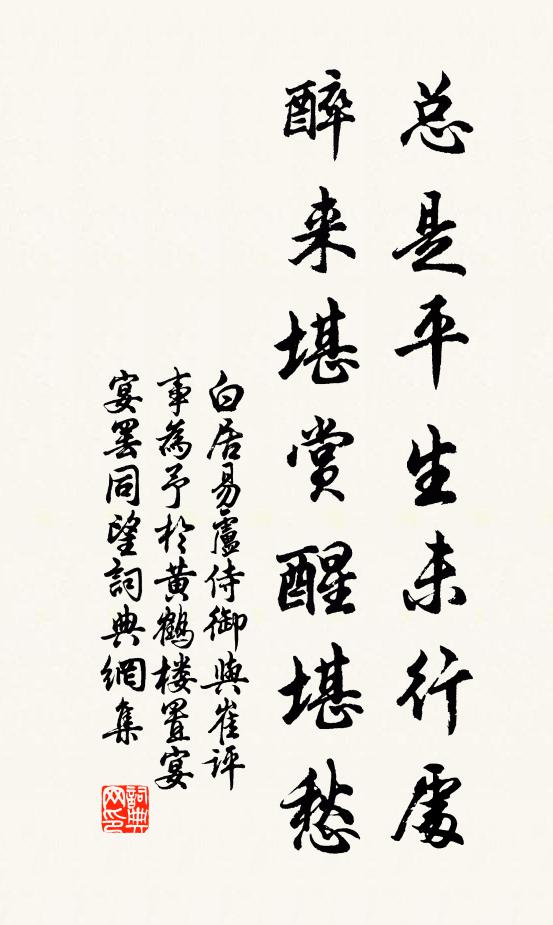 总是平生未行處
醉来堪赏醒堪愁
白居易盧侍御與崔评
事為予於黄鶴楼置宴
宴罢同望詞典網集
詞典
网印